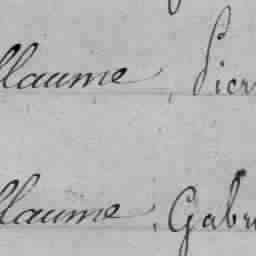 llaume, Pier
llaume, Gabr